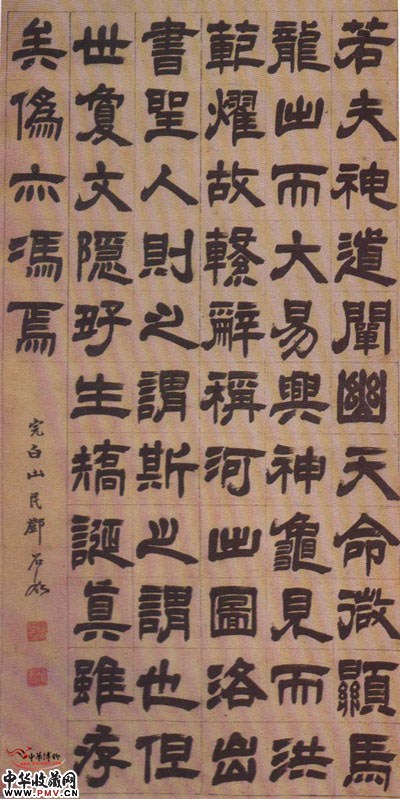 若夫神道闡幽天命微顯馬
龍出而大易興神龜見而洪
範燿故繫辭稱河出圖洛出
書聖人則之謂斯之謂也但
世敻文隱好生矯誕真雖存
矣偽亦馮焉
完白山民鄧石如
中华博物
中华收藏网
www.PMV.cn